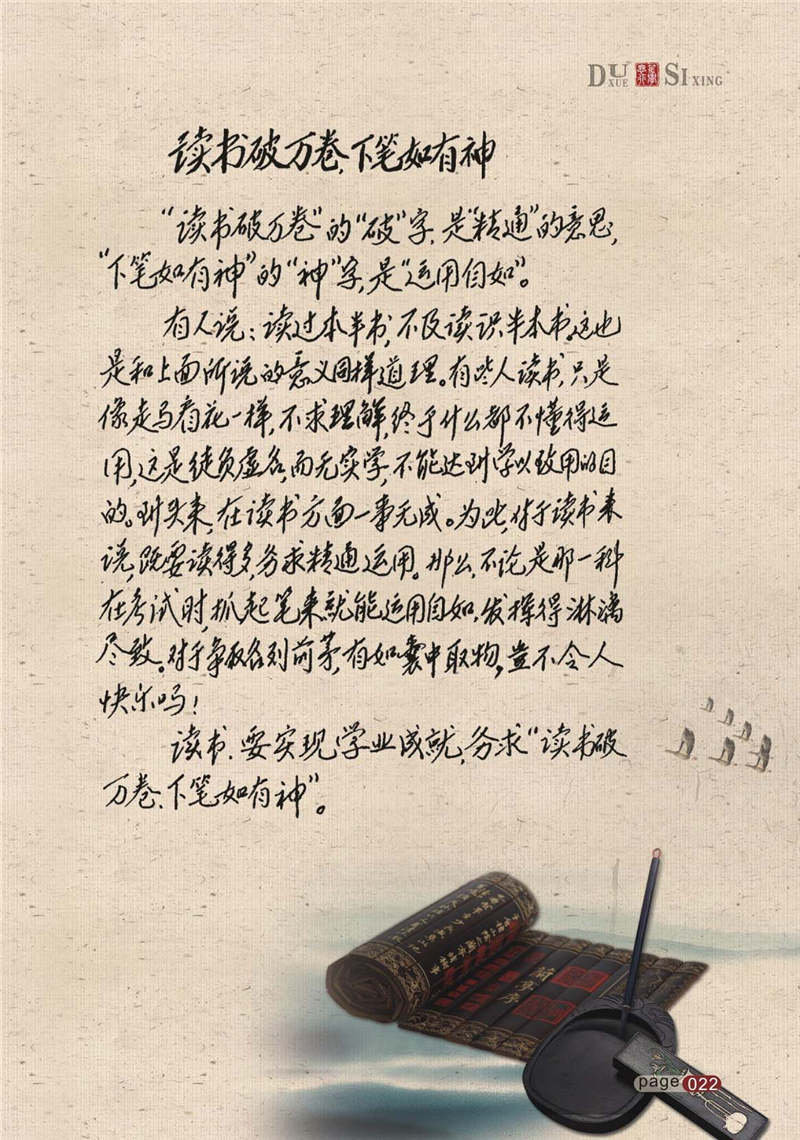 DU XUE 笃学思行 SI XING
读书破万卷,下笔如有神
“读书破万卷”的“破”字,是“精通”的意思,
“下笔如有神”的“神”字,是“运用自如”。
有人说:读过本半书,不及读识半本书,这也
是和上面所说的意义同样道理。有些人读书,只是
像走马看花一样,不求理解,终于什么都不懂得运
用,这是徒负虚名,而无实学,不能达到学以致用的目
的。到头来,在读书方面一事无成。为此,对于读书来
说,既要读得多,务求精通运用。那么,不论是那一科
在考试时,抓起笔来就能运用自如,发挥得淋漓
尽致。对于争取名列前茅,有如囊中取物,岂不令人
快乐吗!
读书.要实现学业成就,务求“读书破
万卷.下笔如有神”。
page 022